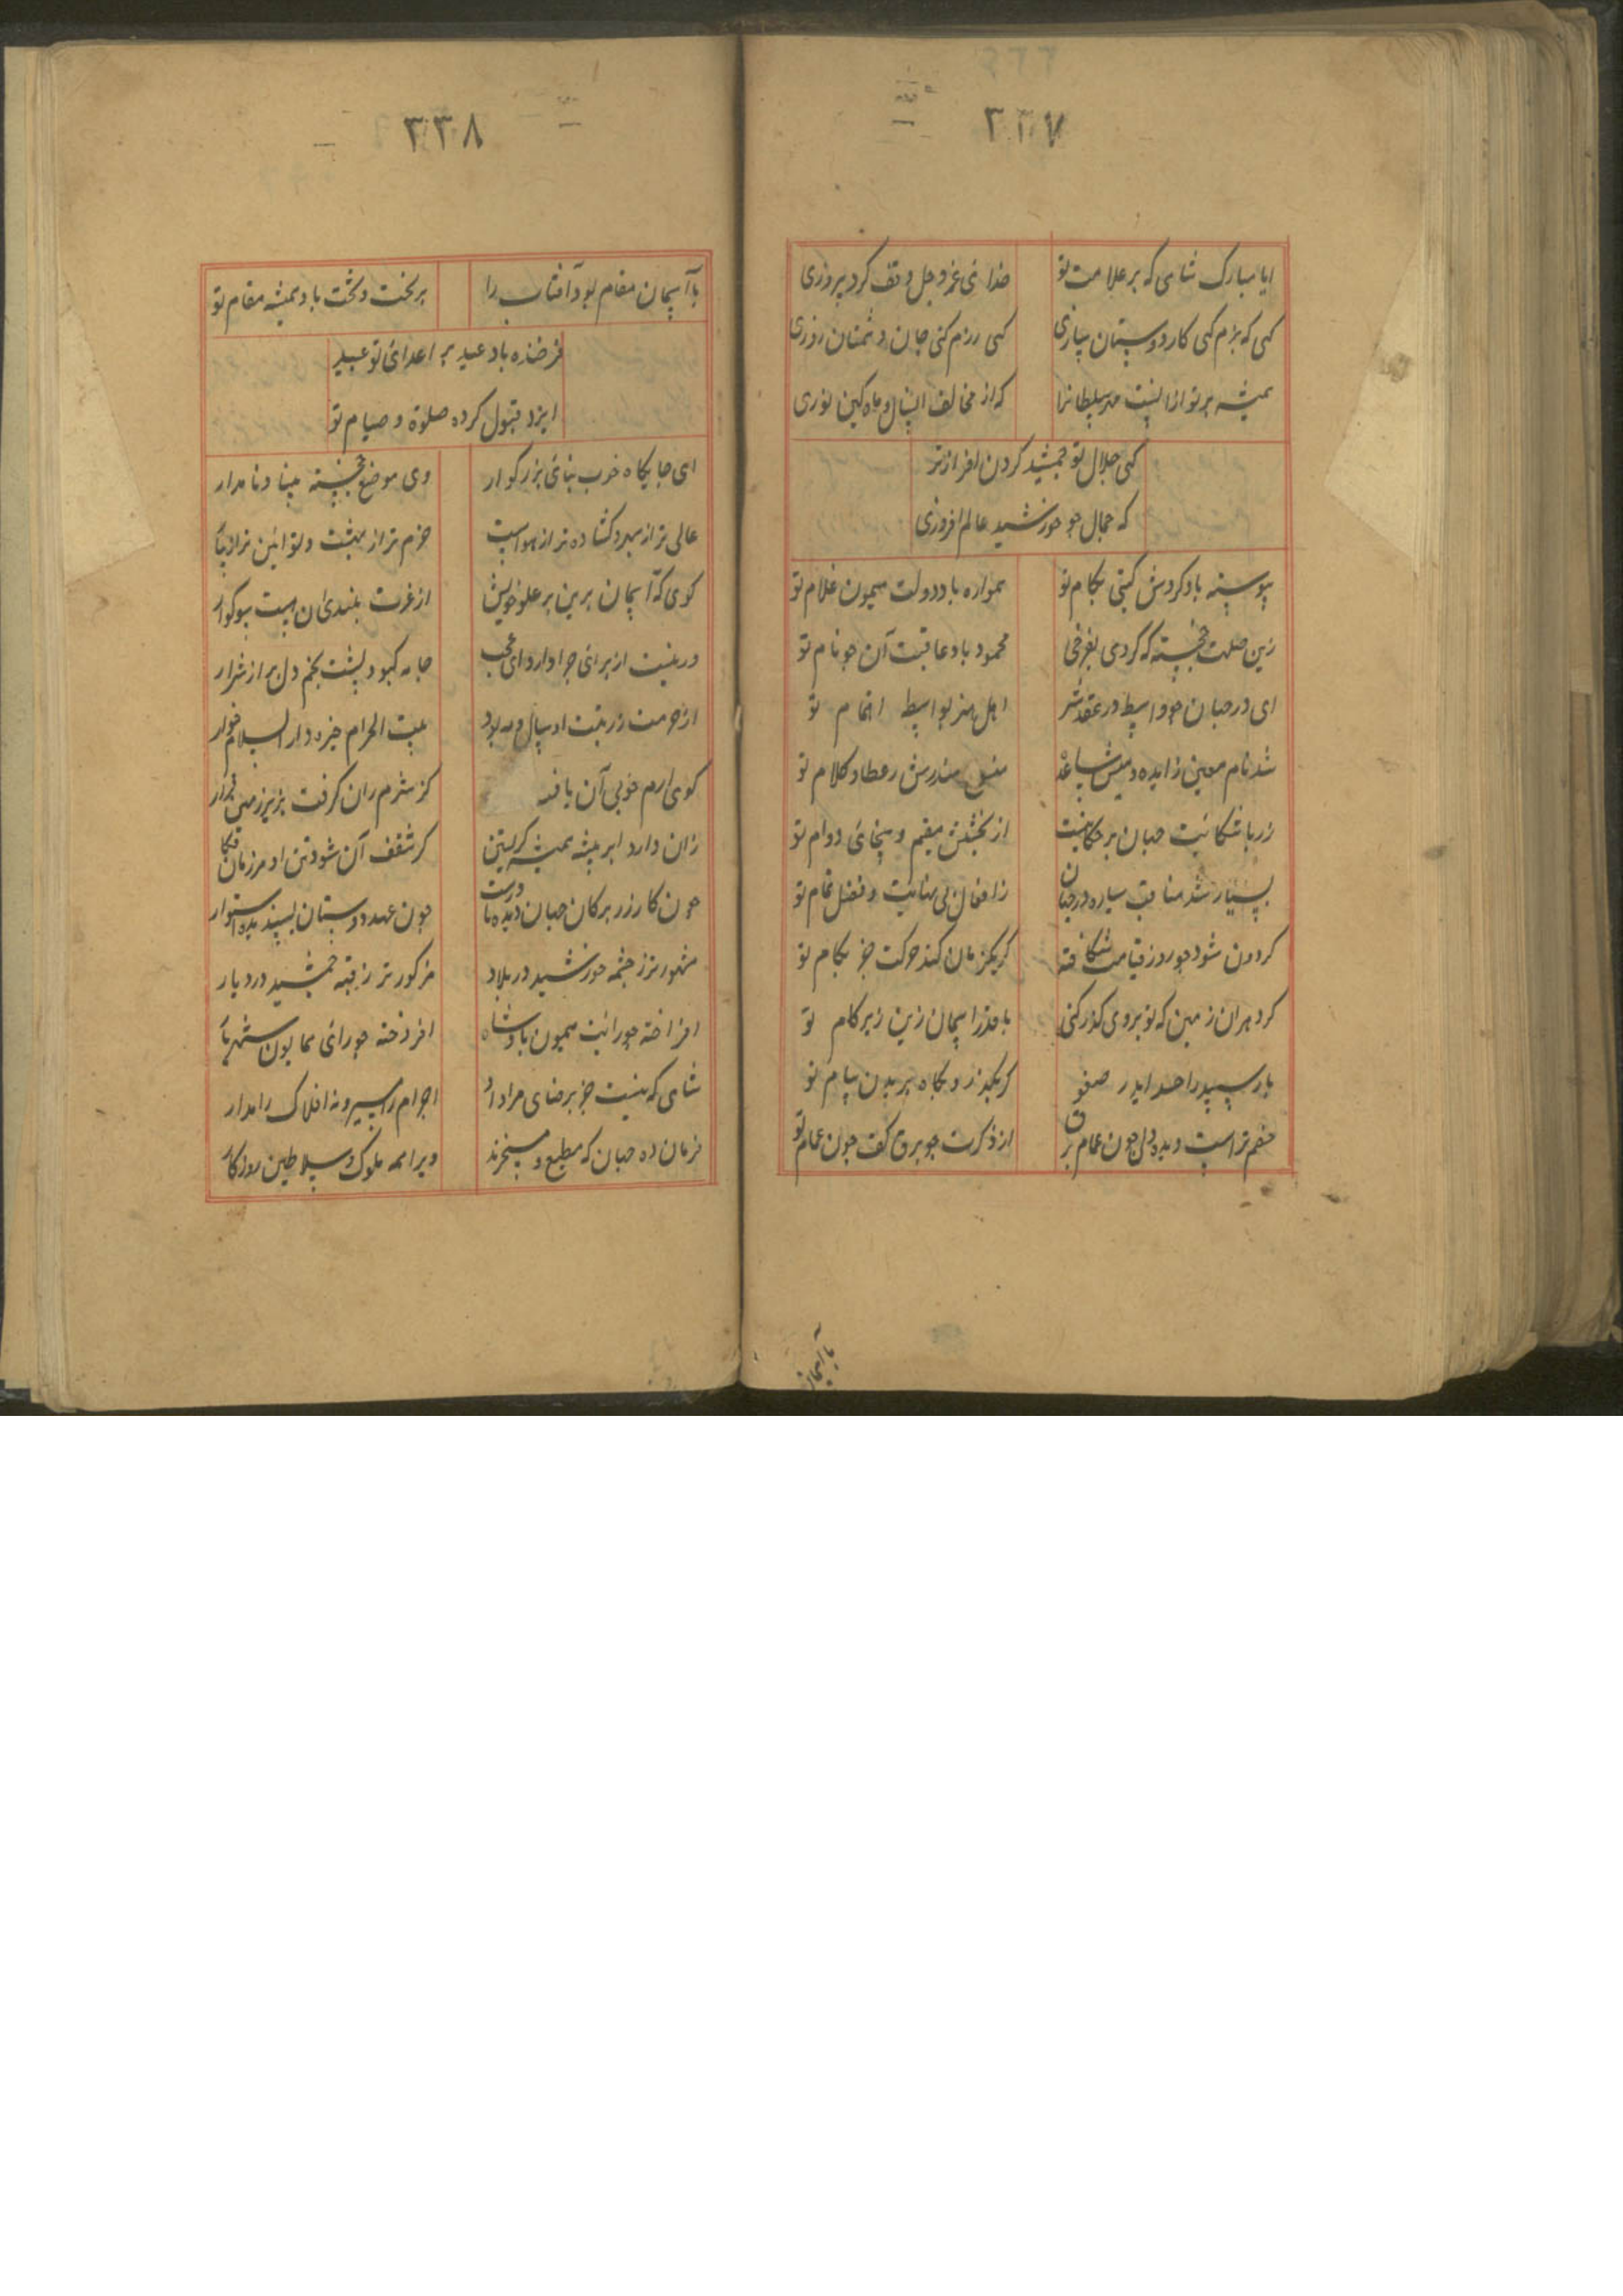 ۳۳۷
ایا مبارک شاهی که بر علامت تو خدای عزوجل وقف کرد پیروزی
کهی که بزم کنی کار دوستان سازی کهی که رزم کنی جان دشمنان دوزی
همیشه بر تو از
که از مخالف کین توزی
کهی جلال تو جمشید کردن افرازتر
که جمال جو خورشید عالم افروزی
پیوسته باد کردش کیتی بکام تو همواره باد دولت میمون غلام تو
زین خجسته که کردی بفرخی محمود باد عاقبت آن جو نام تو
ای در جهان جو واسطه در عقد اهل هنر بواسطه اتمام تو
شد نام معین زایده و عطا و کلام تو
جهان بر حکایتست از بخشش مقیم و سخای دوام تو
بسیار شد مناقب سیاره در جهان ز افعال بی نهایت و فضل تمام تو
کردون شود جو روز قیامت شکافته کر یکزمان کند حرکت جز بکام تو
کرد هران زمین که تو بر وی کذر کنی با قدر آسمان زمین زیر کام تو
باز سپید را
بکاه بریدن پیام تو
خصم تراست دیده و دل جون غمام و برق از ذکرت جو برق کف جون غمام تو
با آسمان
۳۳۸
با آسمان مقام بود آفتاب را بر تخت و بخت باد همیشه مقام تو
فرخنده باد عید بر اعدای تو عبید
ایزد قبول کرده صلوة و صیام تو
ای جایکاه خوب بنای بزرکوار وی موضع خجسته میناء نامدار
عالی تر از سپهر و کشاده تر از هواست خرم تر از بهشت و نو آئین تر از بهار
کوی که آسمان برین بر علو خویش از غیرت بلندی آن هست سوکوار
ور نیست از برای چرا دارد ای عجب جامه کبود و پشت بخم دل پر از شرار
از حرمت و زینت او سال و مه بود بیت الحرام خیره و دار السلام خوار
کوی ارم خوبی آن یافته کز شرم آن کرفت بزیر زمین قرار
زان دارد ابر همیشه کر سقف آن شود تن او هر زمان فکار
جون کار زر برکان جهان دیده با درست جون عهد دوستان پسندیده استوار
مشهورتر ز چشمه خورشید در بلاد مذکورتر ز قبه جمشید در دیار
افراخته جو رایت میمون بادشاه افروخته جو رای همایون شهریار
شاهی که نیست جز برضای و مراد او اجرام را مسیر و نه افلاک را مدار
فرمان ده جهان که مطیع و مسخرند ویرا همه ملوک و سلاطین روزکار